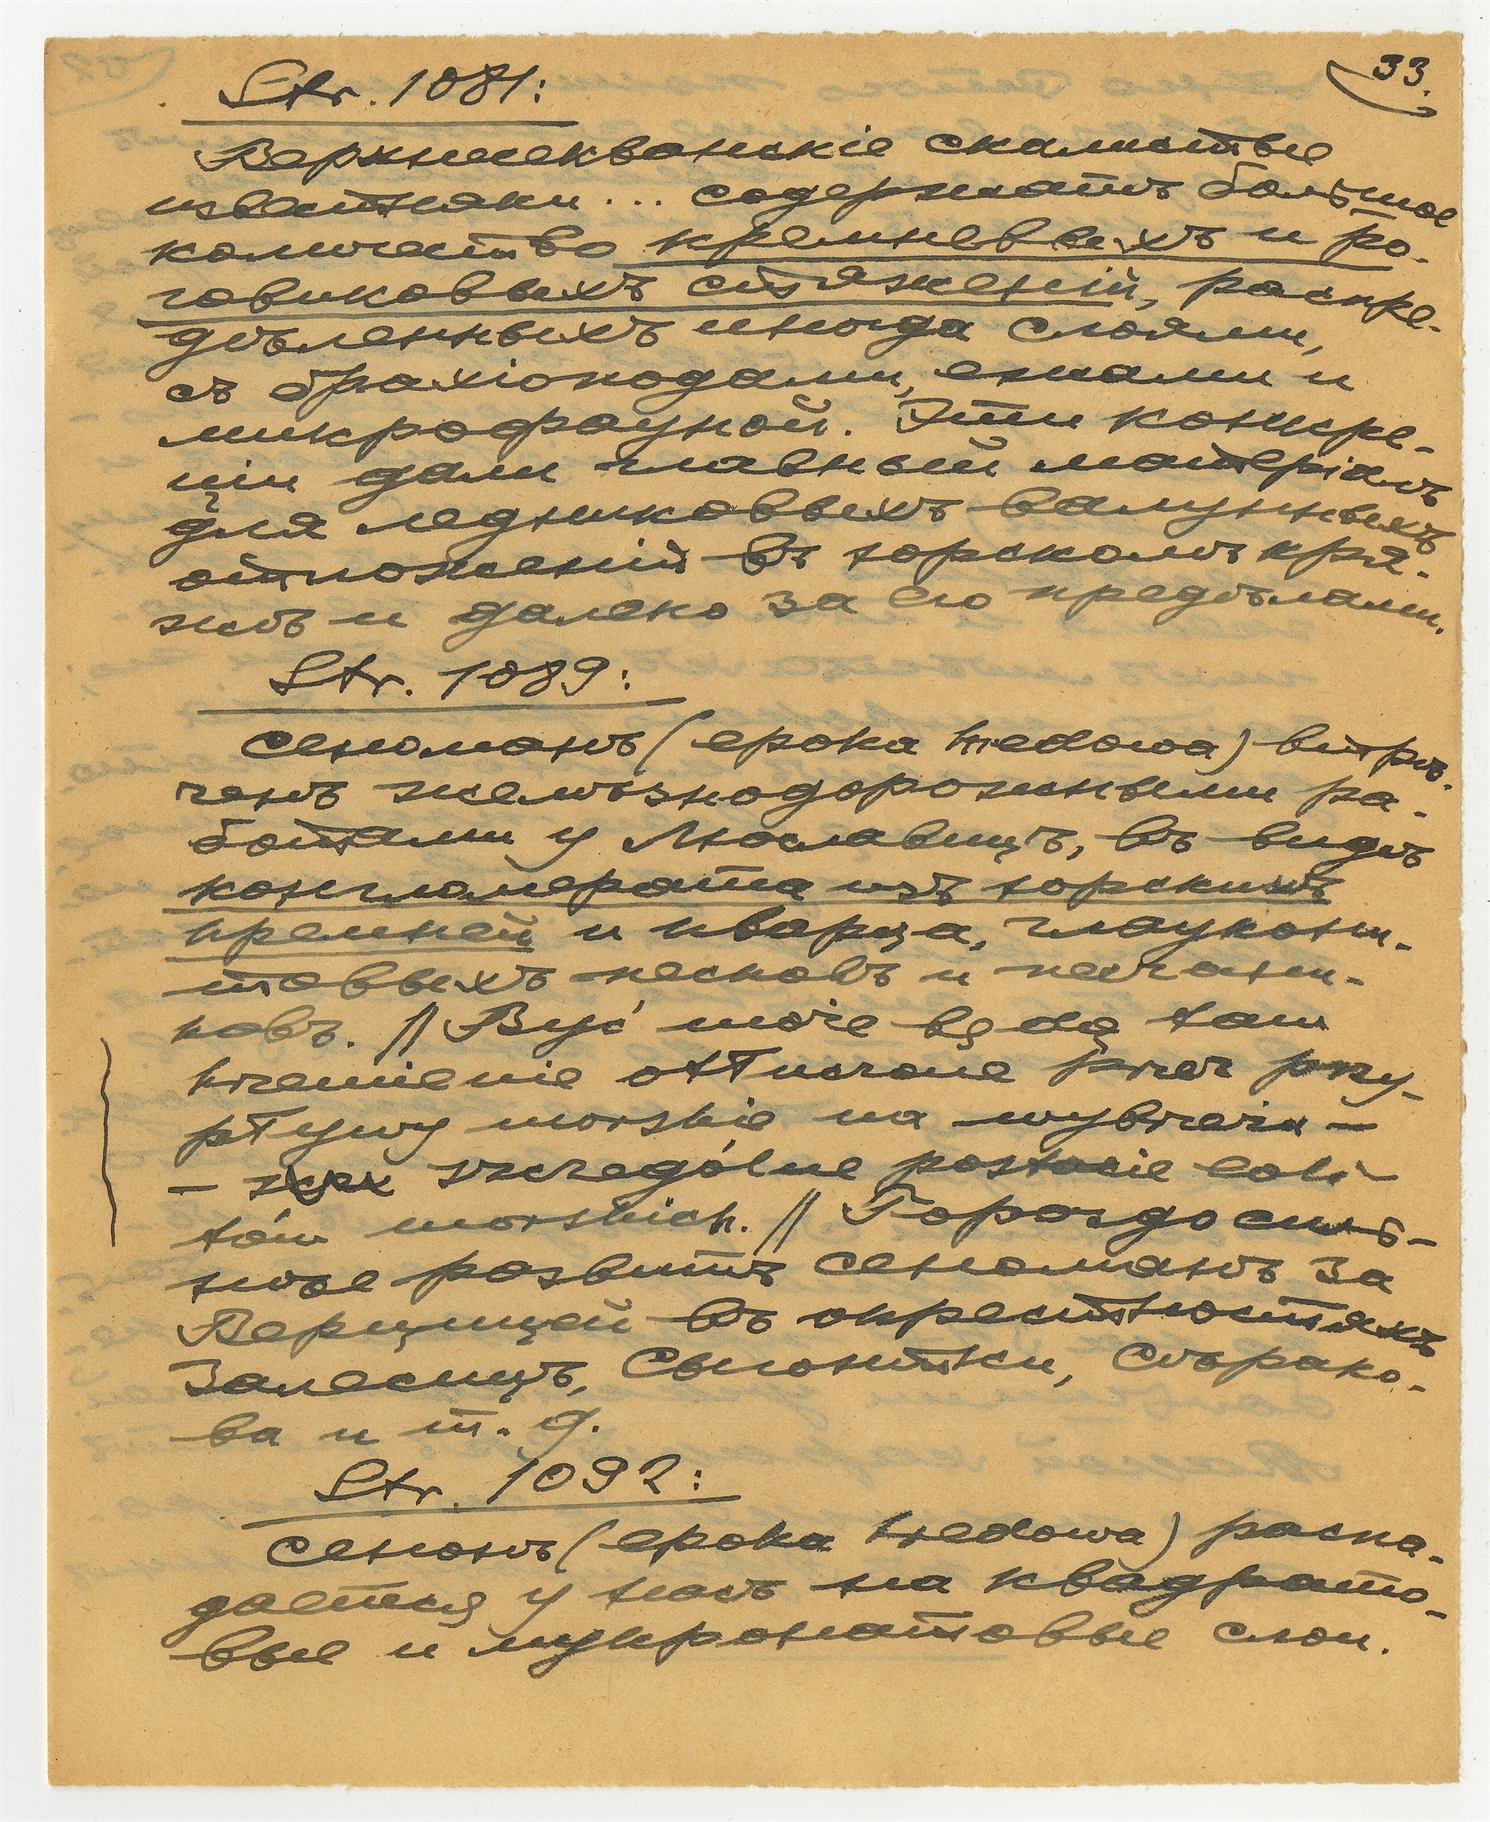 33.
Str. 1081:
Верхнесекванскіе скалистые
известняки ... содержатъ большое
количество кремневыхъ и ро-
говиковыхъ стяженій, распре-
дѣленныхъ иногда слоями,
съ брахіоподами, ежами и
микрофауной. Эти конкре-
ціи дали главный матеріалъ
для ледниковыхъ валунныхъ
отложеній въ юрскомъ кря-
жѣ и далеко за его предѣлами.
Str. 1089:
Сеноманъ (epoka kredowa) встрѣ-
ченъ желѣзнодорожными ра-
ботами у Мославицъ, въ видѣ
конгломерата изъ юрскихъ
кремней и кварца, глаукони-
товыхъ песковъ и песчани-
ковъ. // Być może będą tam
krzemienie otłuczone przez przy-
pływy morskie na wybrzeżu –
– szczególne postacie eoli-
tów morskich. // Гораздо силь-
нѣе развитъ сеноманъ за
Верщицей въ окрестностяхъ
Залесицъ, Свыонтки, Сѣрако-
ва и т. д.
Str. 1092:
Сенонъ (epoka kredowa) распа-
дается у насъ на квадрато-
вые и мукронатовые слои.